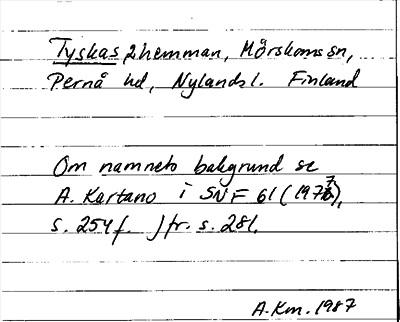 Tyskas 2 hemman, Mörskoms sn,
Pernå hd, Nylands l. Finland
Om namnets bakgrund se
A. Kartano i SNF 61 (1977),
s. 254 f. Jfr. s. 281.
A.Km. 1987